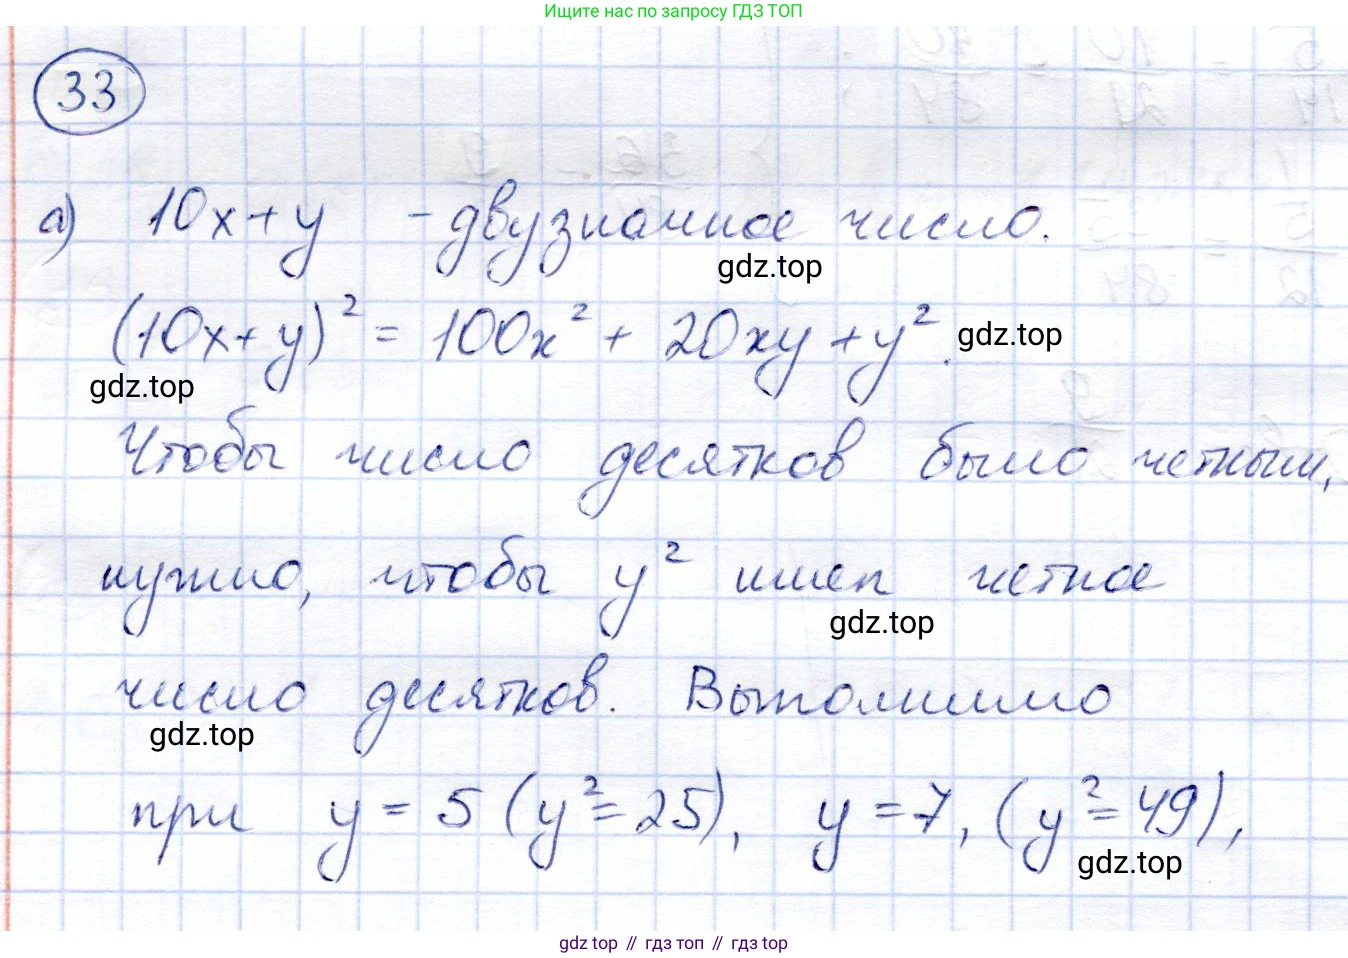 Ищите нас по запросу ГДЗ ТОП
33
а) 10x+y - двузначное число.
gdz.top
(10x+y)² = 100x² + 20xy + y².
gdz.top
gdz.top
Чтобы число десятков было четным,
нужно, чтобы y² имел четное
gdz.top
число десятков. Выполнимо
gdz.top
при y = 5 (y²=25), y = 7, (y²=49),
gdz.top
gdz top // гдз топ // гдз top